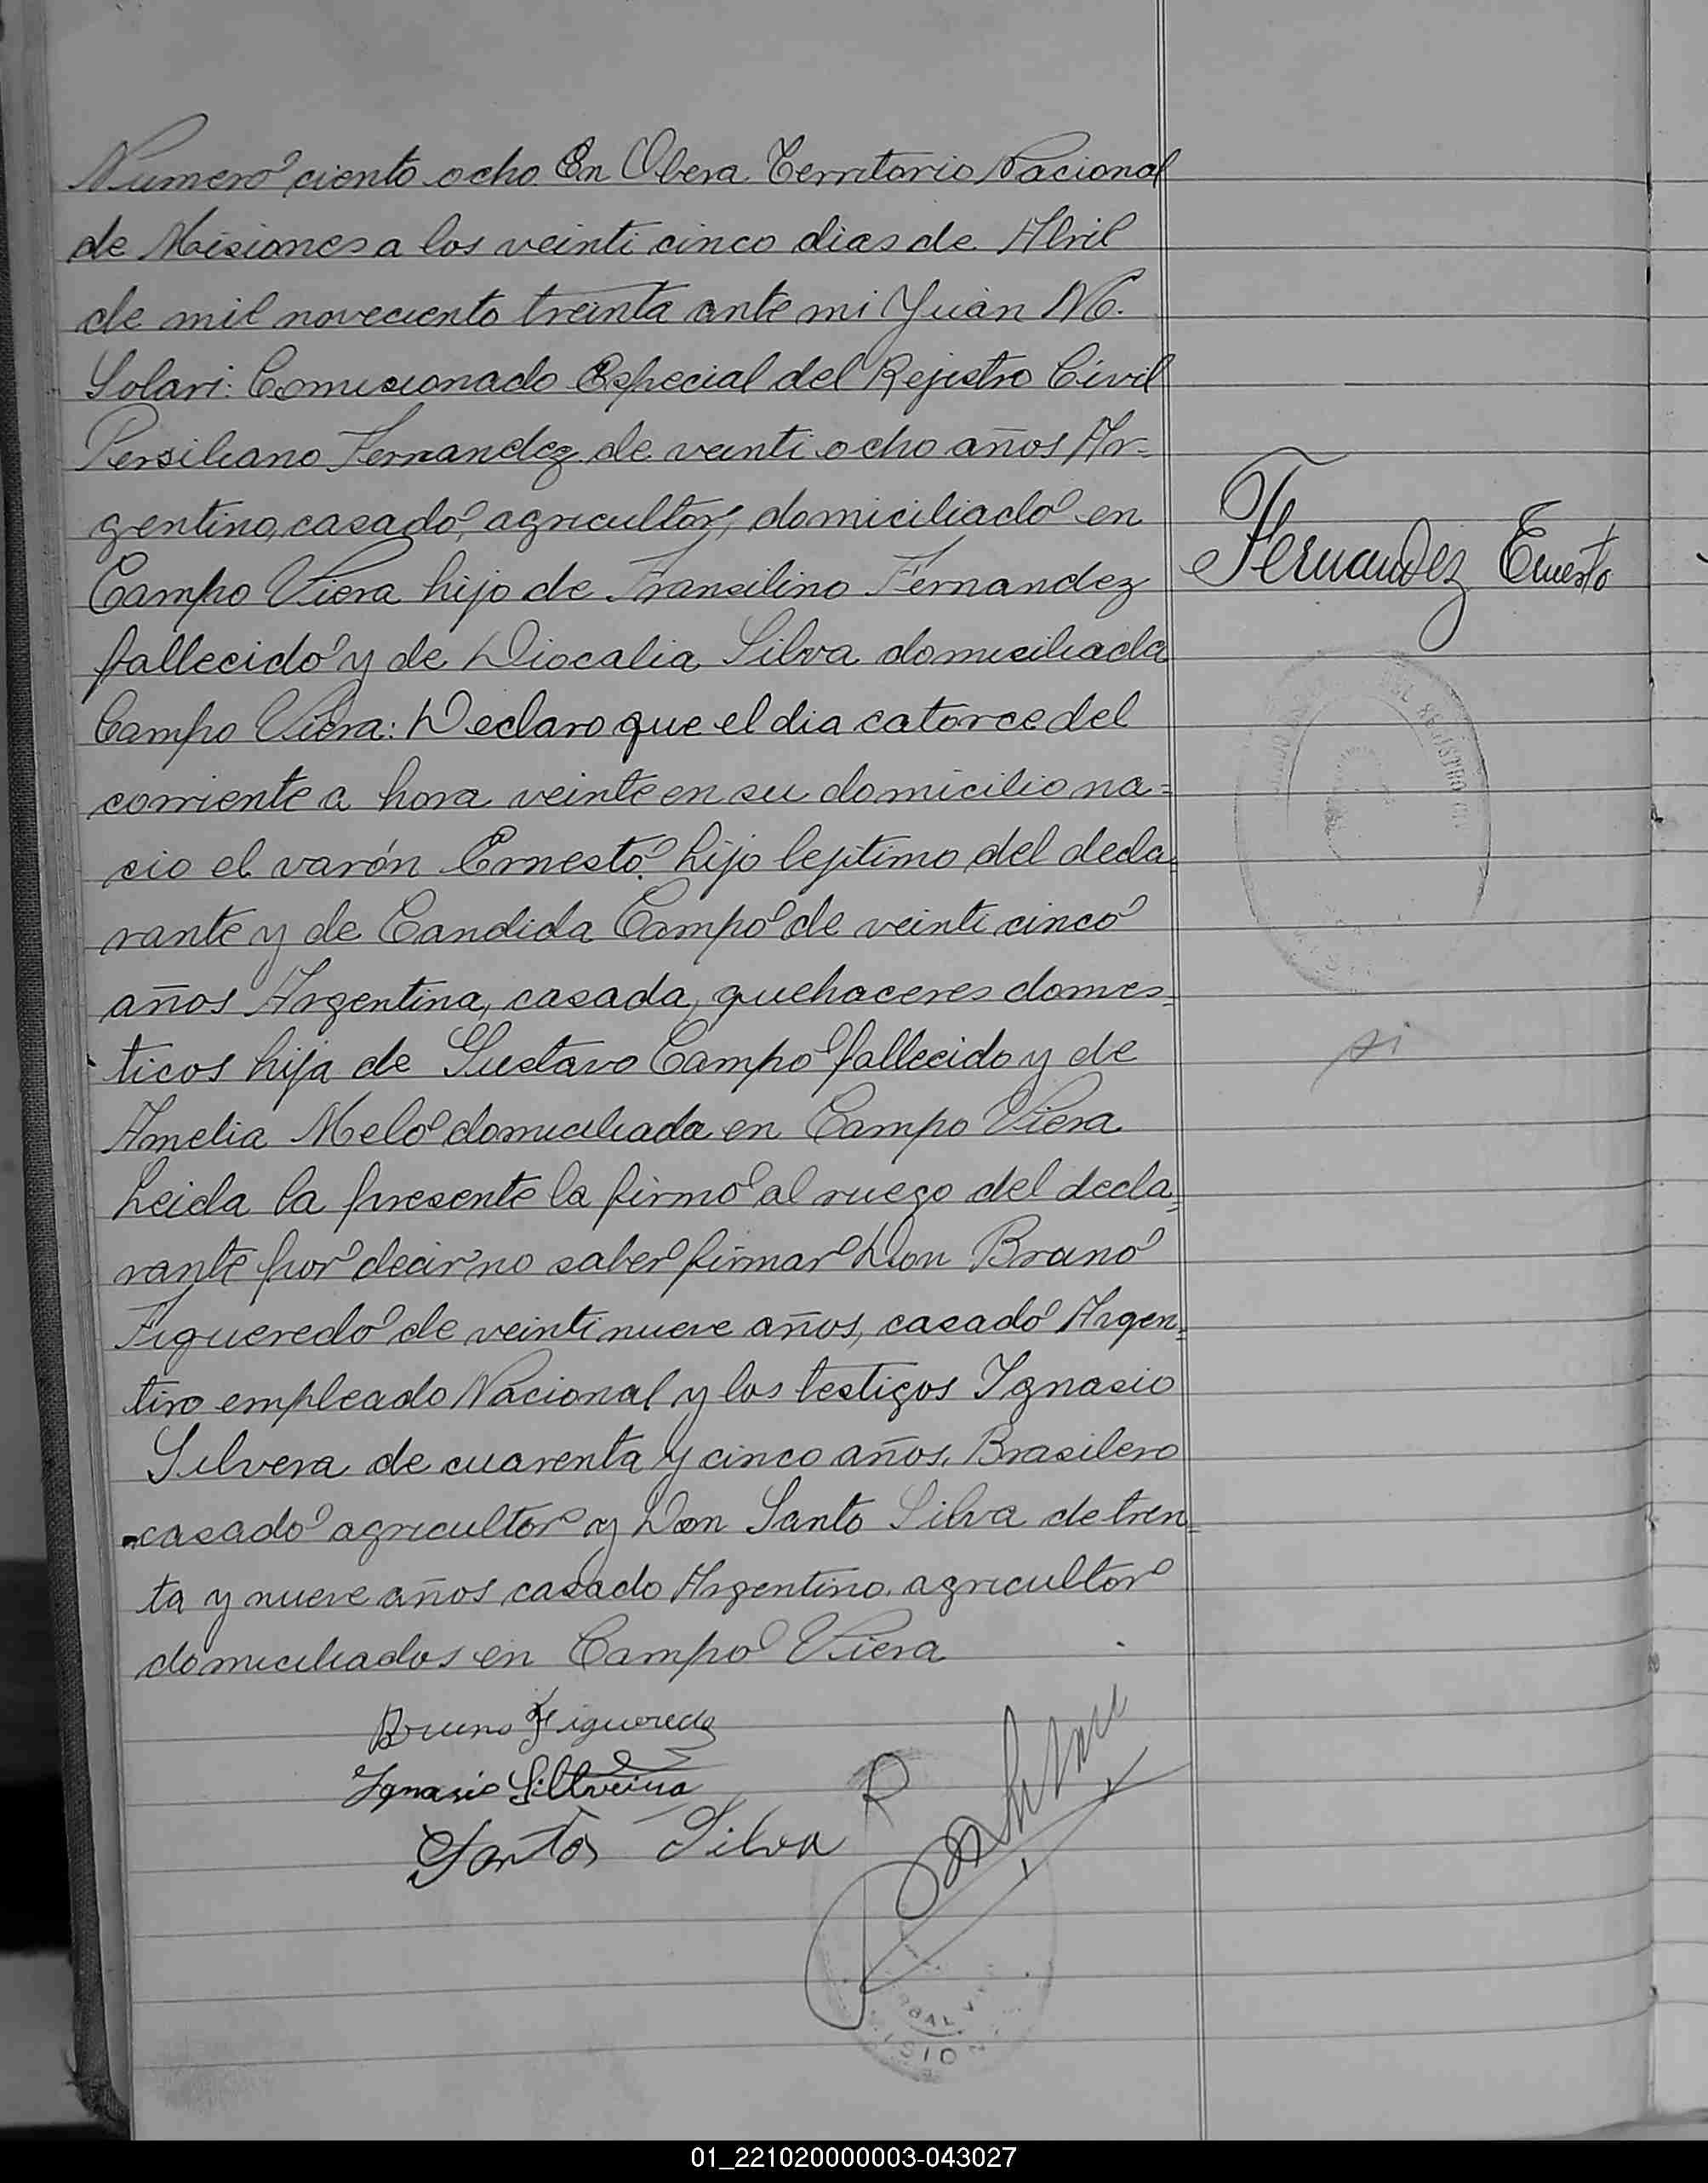 Numero ciento ocho En Obera Territorio Nacional
de Misiones a los veinti cinco dias de Abril
de mil noveciento treinta ante mi Juan M.
Solari: Comisionado Especial del Rejistro Civil
Persiliano Fernandez de veinti ocho años Ar=
gentino, casado, agricultor, domiciliado en
Campo Viera hijo de Fransilino Fernandez
fallecido y de Diocalia Silva domisiliada
Campo Viera: Declaro que el dia catorce del
corriente a hora veinte en su domicilio na=
cio el varón Ernesto hijo lejitimo del decla=
rante y de Candida Campo de veinti cinco
años Argentina, casada, quehaceres domes=
ticos hija de Gustavo Campo fallecido y de
Amelia Melo domiciliada en Campo Viera
Leida la presente la firmo al ruego del decla=
rante por decir no saber firmar Don Bruno
Figueredo de veinti nueve años, casado Argen=
tino empleado Nacional y los testigos Ignasio
Silvera de cuarenta y cinco años, Brasilero
casado agricultor y Don Santo Silva de tren=
ta y nueve años casado Argentino, agricultor
domiciliados en Campo Viera
Bruno Figueredo
Ignasio Sillveira
Santos Silva
Fernandez Ernesto
si
01_221020000003-043027